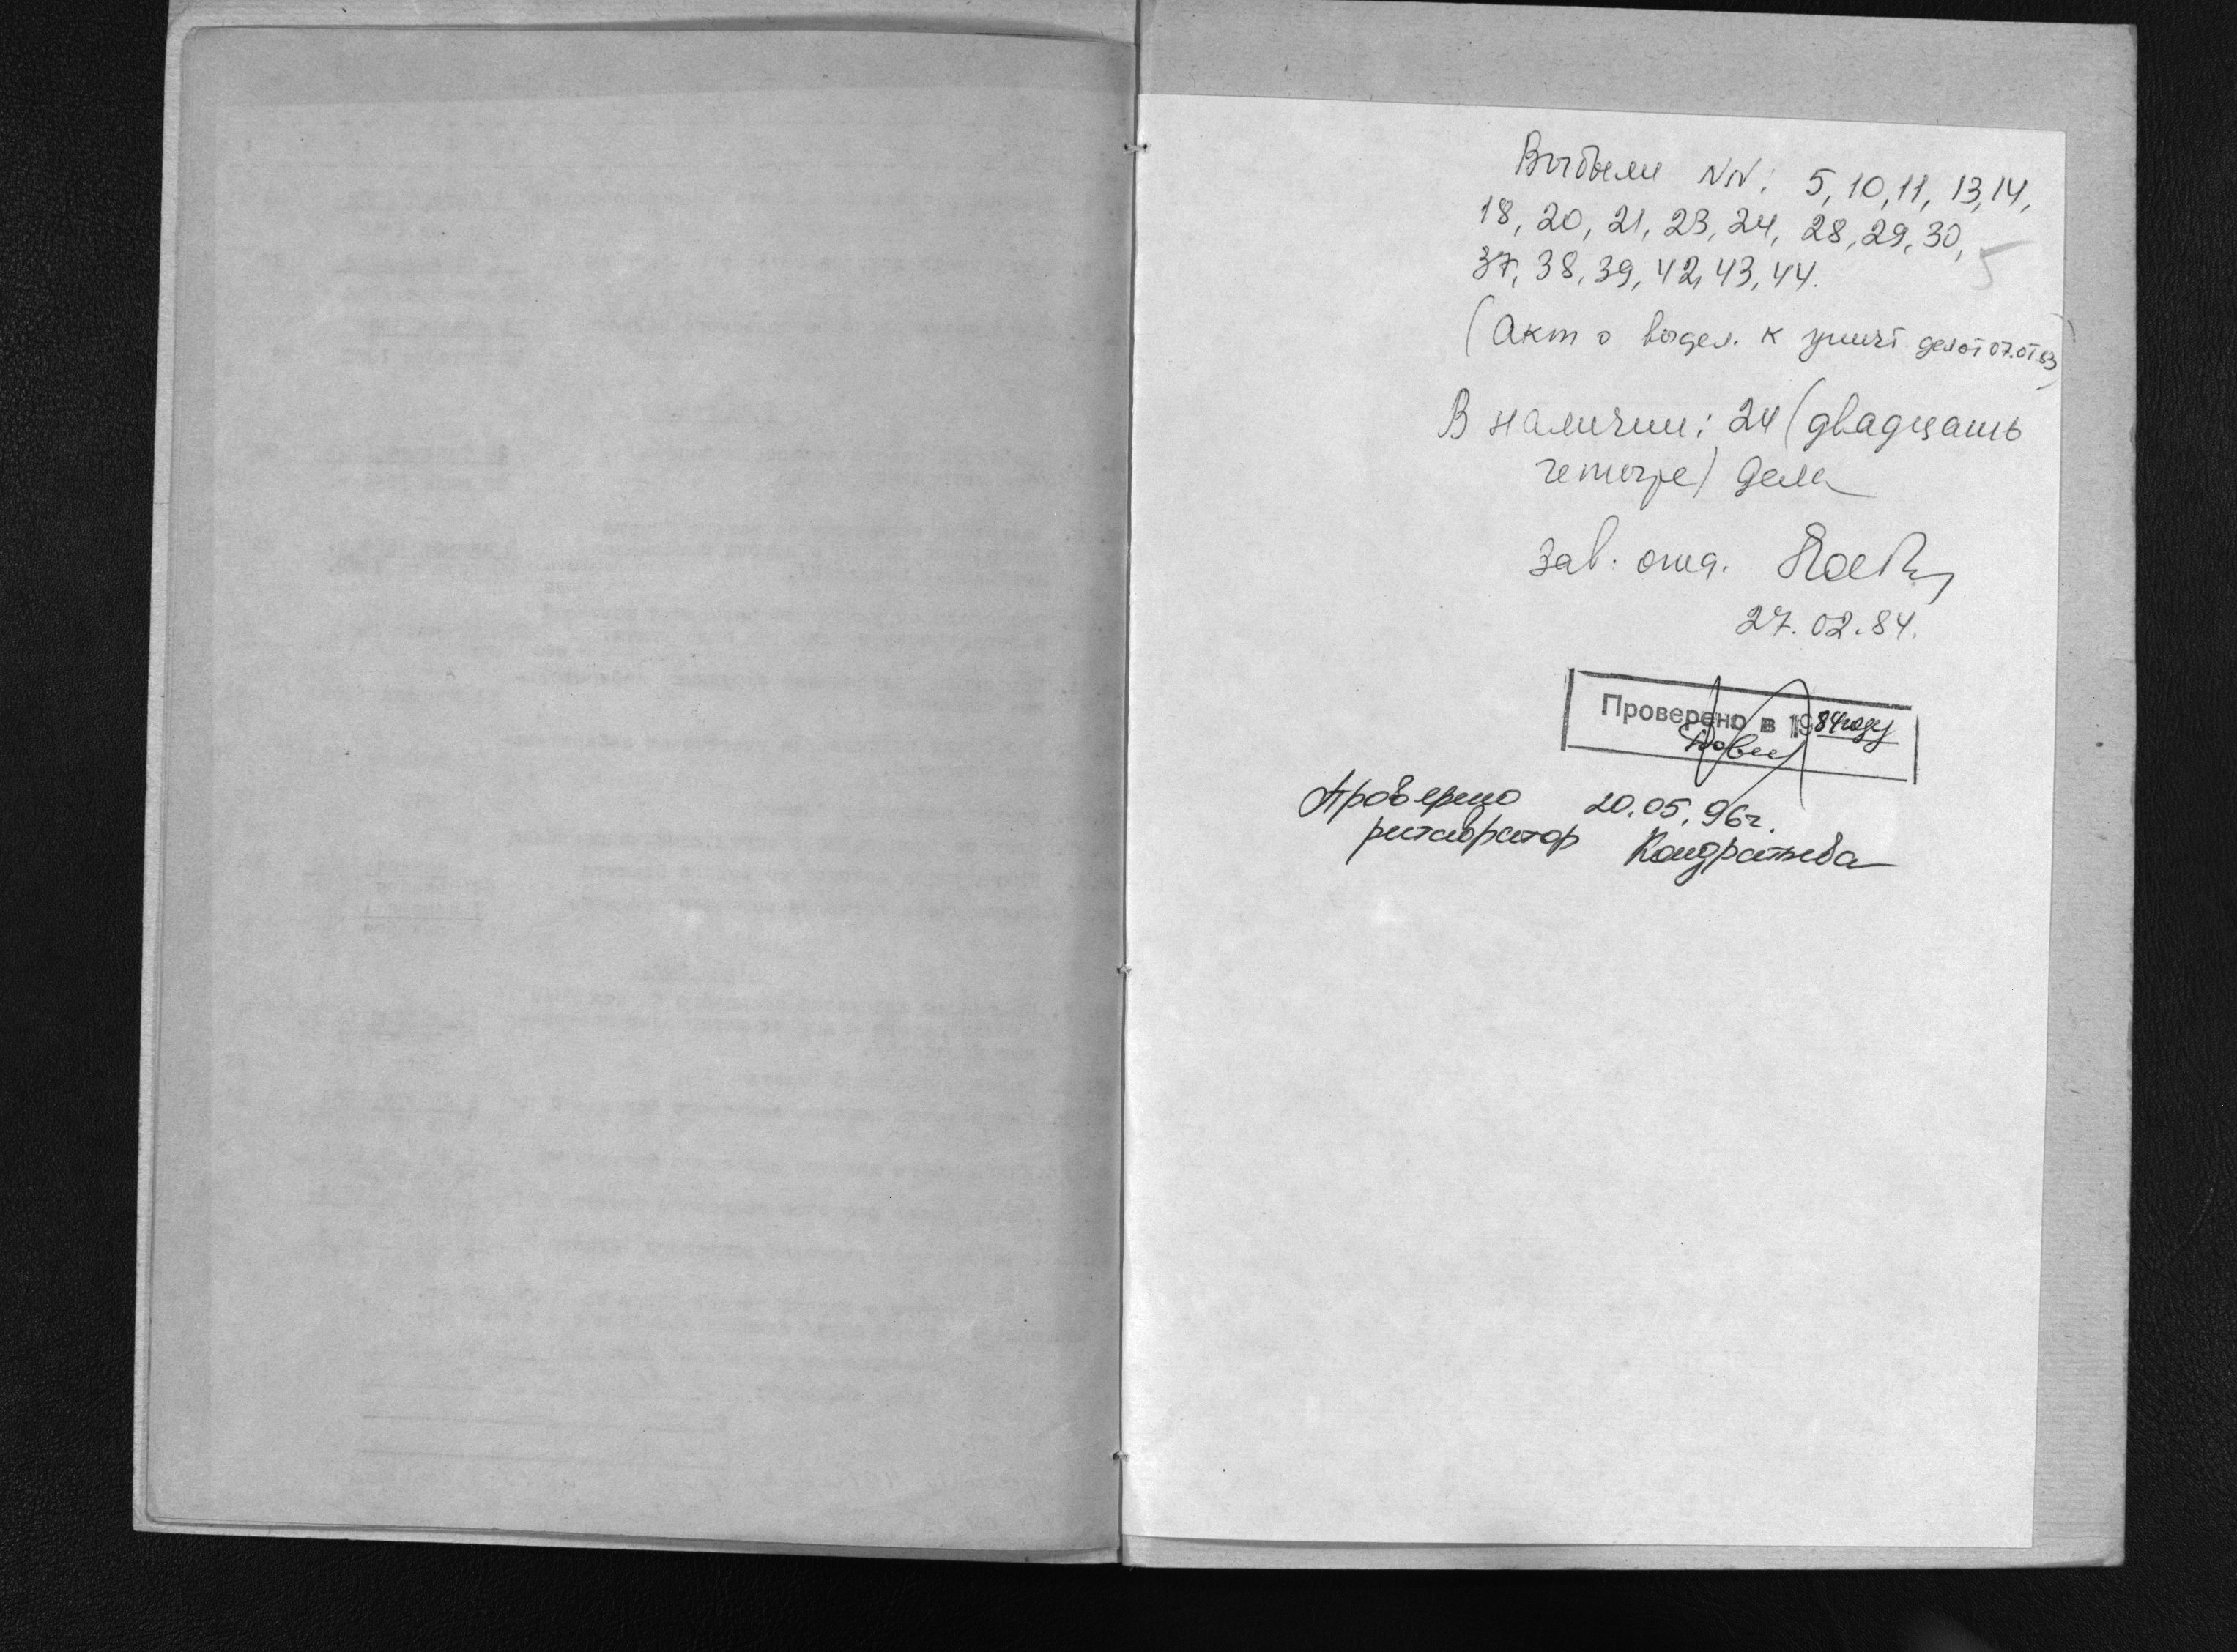 Выбыли NN: 5, 10, 11, 13, 14,
18, 20, 21, 23, 24, 28, 29, 30,
37, 38, 39, 42, 43, 44.
5
(Акт о выдел. к уничт дел от 07.01.83)
В наличии: 24 (двадцать
четыре) дела
зав. отд.
27.02.84.
Проверено в 1984 году
Проверено 20.05.96г.
риставратор Кондратьева